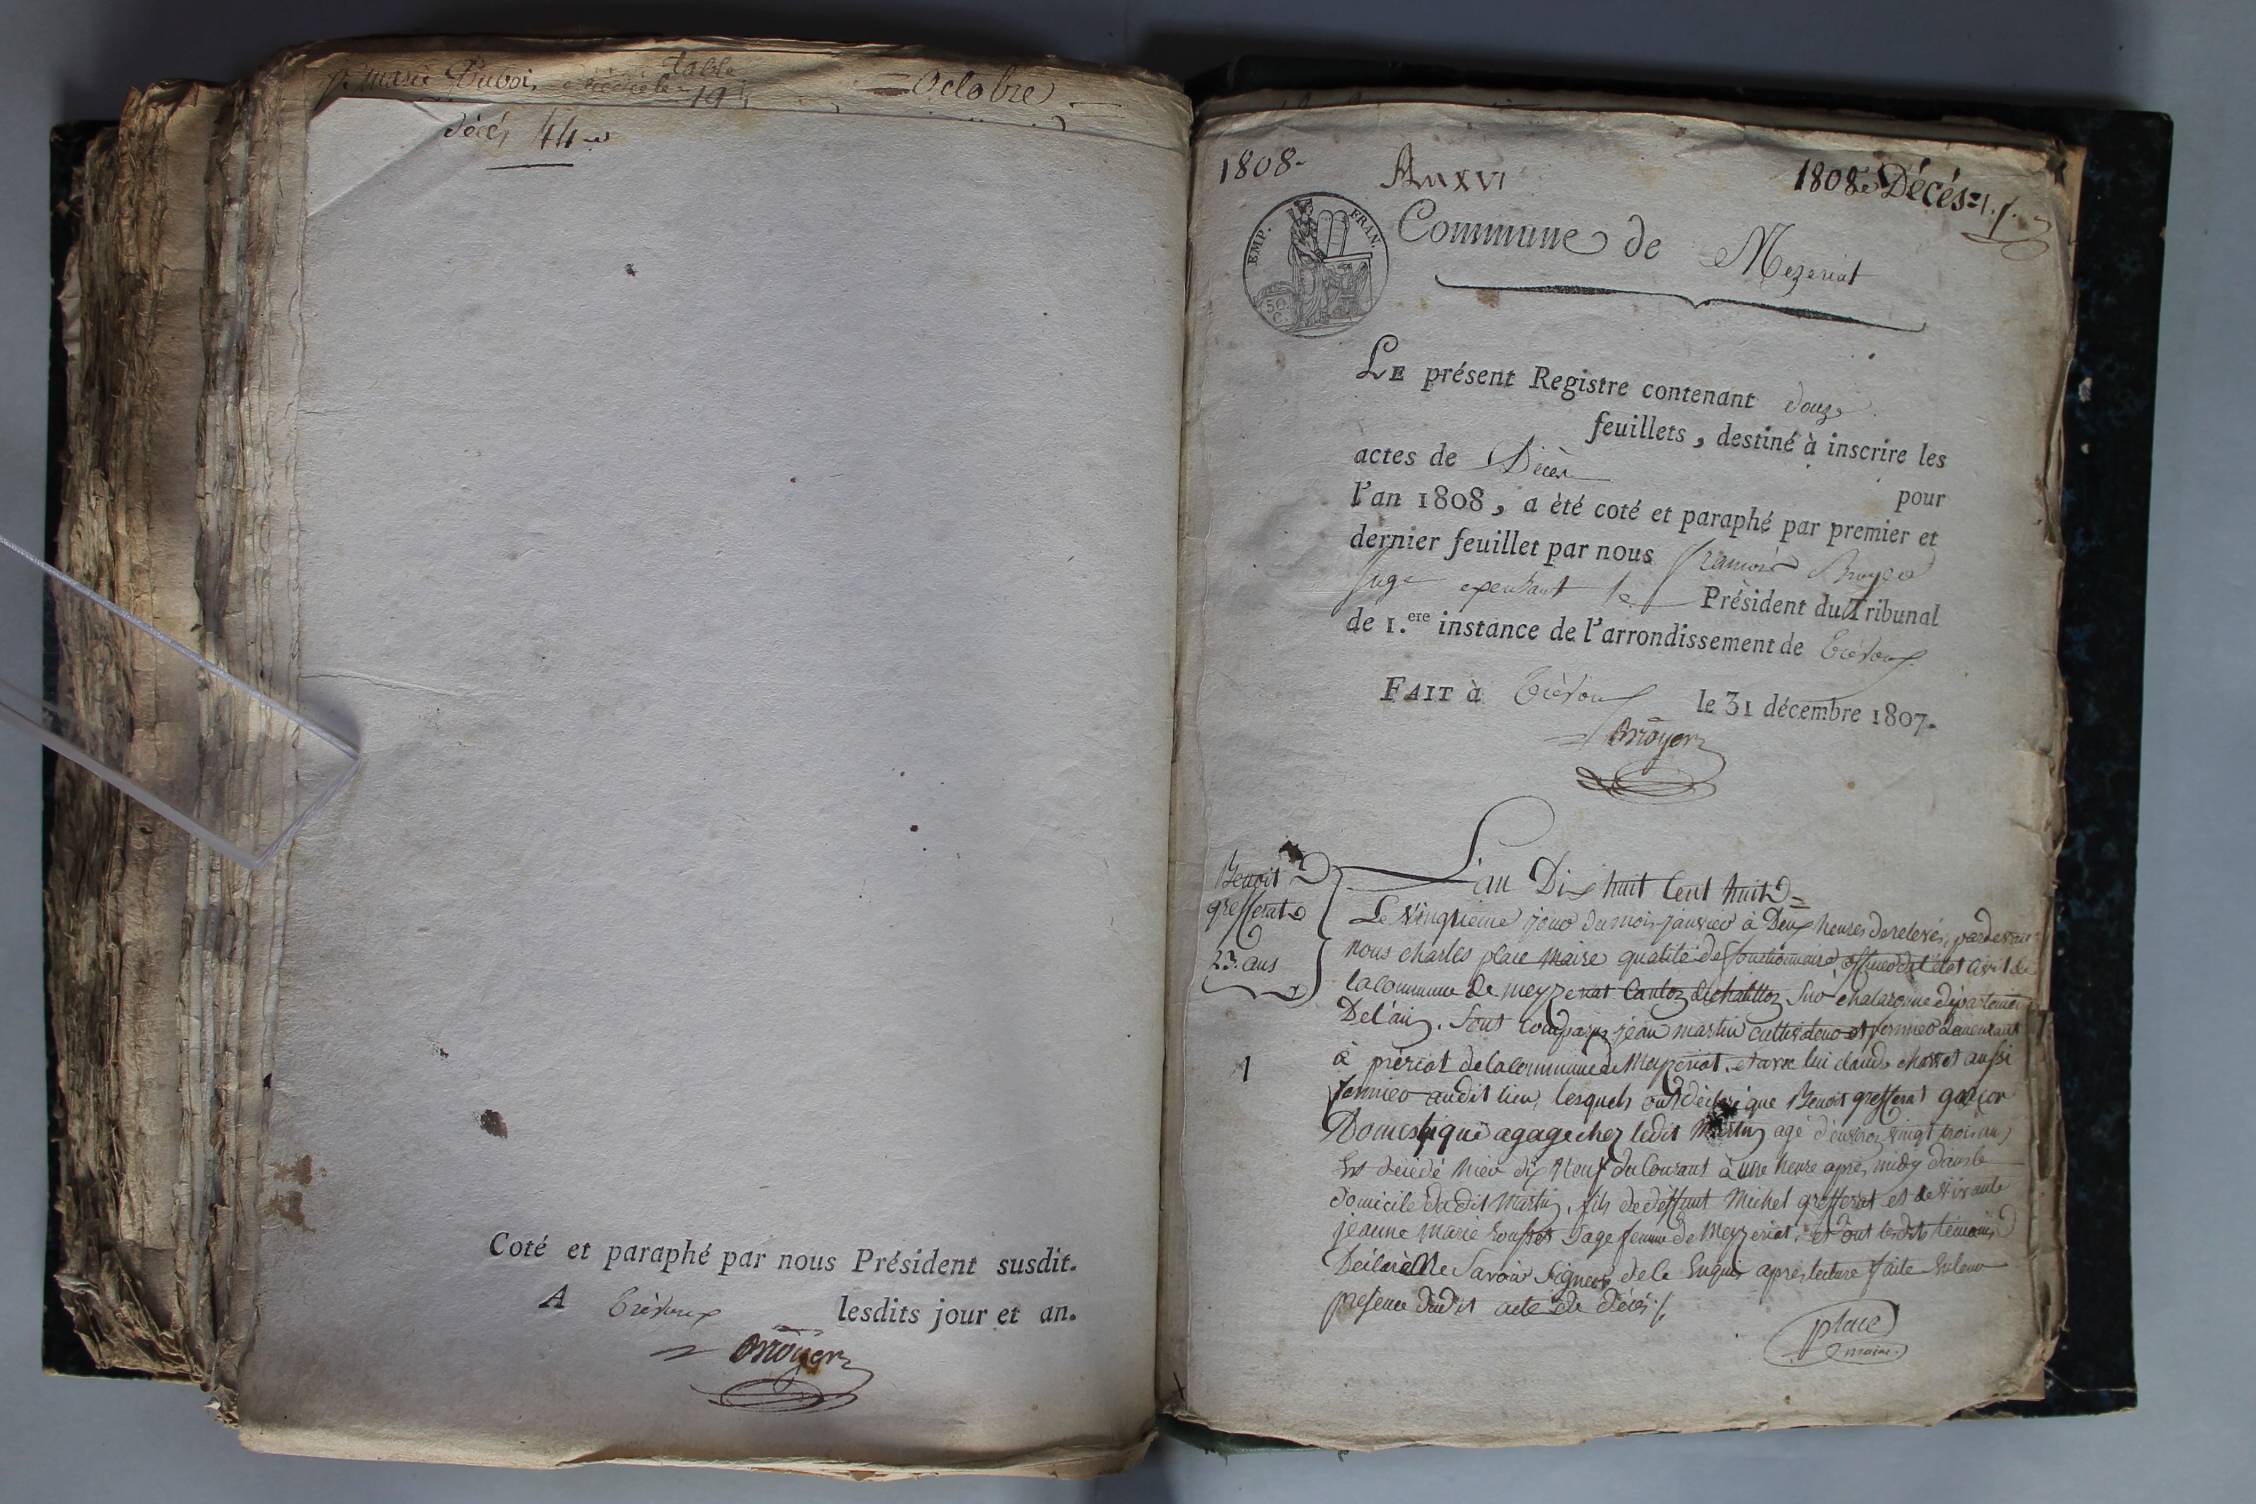 marie Buboi table
19 = Octobre
décès 44
Coté et paraphé par nous Président susdit.
A Trévoux lesdits jour et an.
Brroyer
1808- An XVI 1808 Décés=
EMP. FRAN.
50
C.
Commune de Mezeriat
LE présent Registre contenant douze
feuillets, destiné à inscrire les
actes de Décès pour
l'an 1808, a èté coté et paraphé par premier et
dernier feuillet par nous
Juge le Président du Tribunal
de 1.ere instance de l'arrondissement de Trévoux
FAIT à Trévoux le 31 décembre 1807.
Brroyer
Benoit
grefferat
23 ans
1
L'an Dix huit Cent huit =
Le vingtieme jour du mois janvier à Deux heures de relevés, pardevant
nous charles place Maire qualité de fonctionnaire officer de l'état civil de
la commune de meyzeriat Canton de chatillon sur chalaronne département
De l'ain. Sont comparus jean martin cultivateur et fermier demeurant
à prériat de la commune de Meyzeriat. et avec lui claude aussi
fermier audit lieu, lesquels ont déclaré que Benoit grefferat garçon
Domestique a gage chez ledit Martin agé d'environ vingt trois ans
Est décédé hier dix Neuf du Courant à une heure après midy dans le
domicile dudit Martin, fils de deffunt Michel grefferat et de vivante
jeanne marie sage femme de Meyzeriat. et ont lesdits témoins
Déclaré Ne Savoir Signer de ce Enquis après lecture faite En leur
presence dudit acte de décès
place
maire.